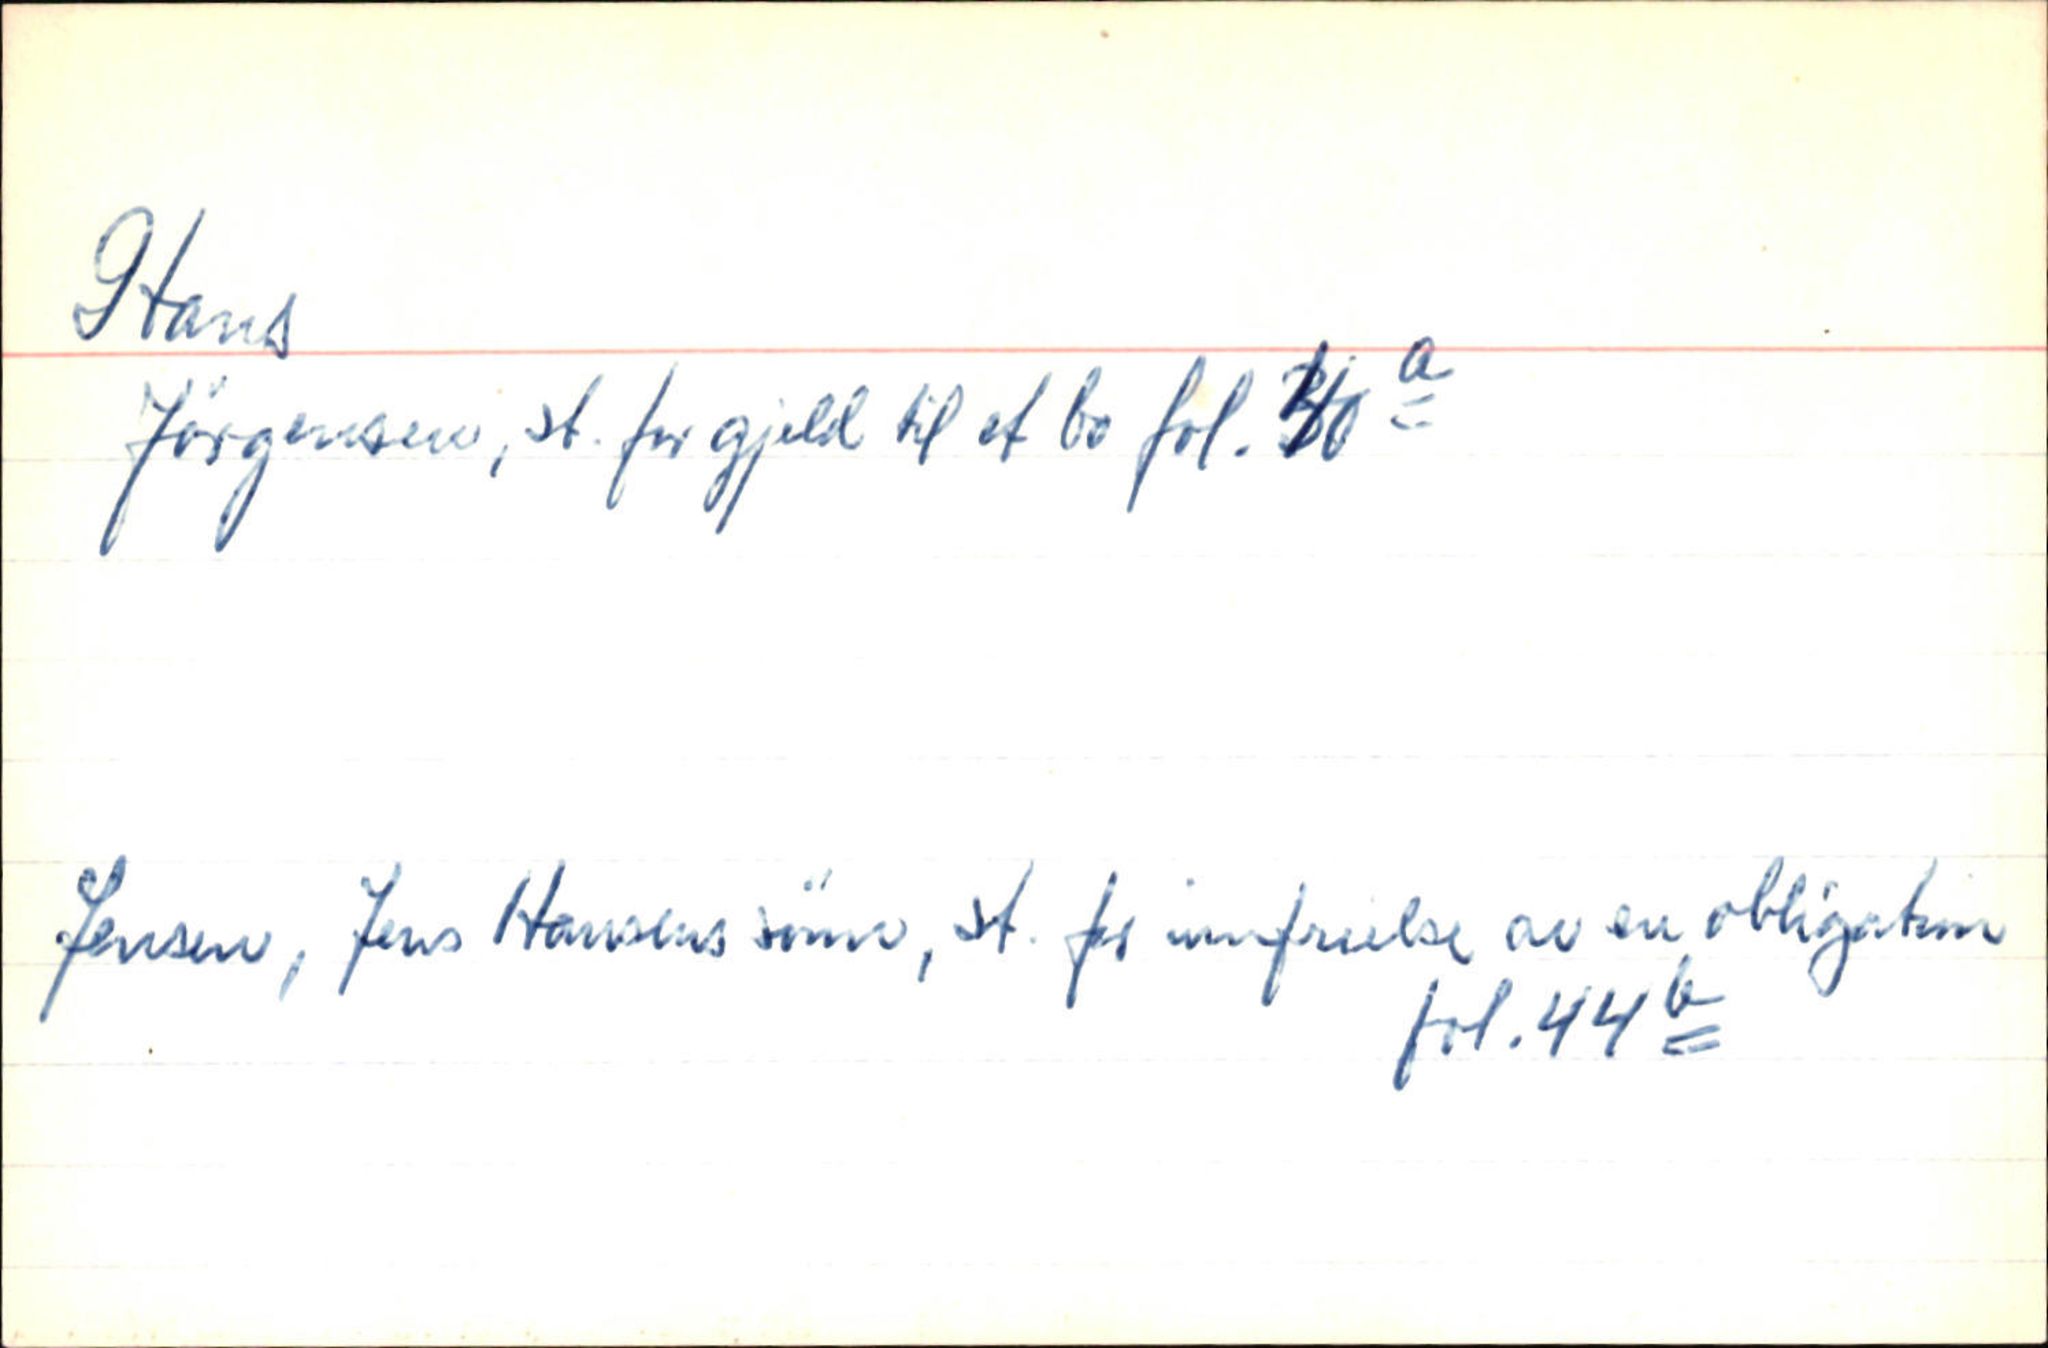 Hans
Jörgensen, st. for gjeld til et bo fol. a
Jensen, Jens Hansens sönn, st. for innfrielse av en obligation
fol. 44 b